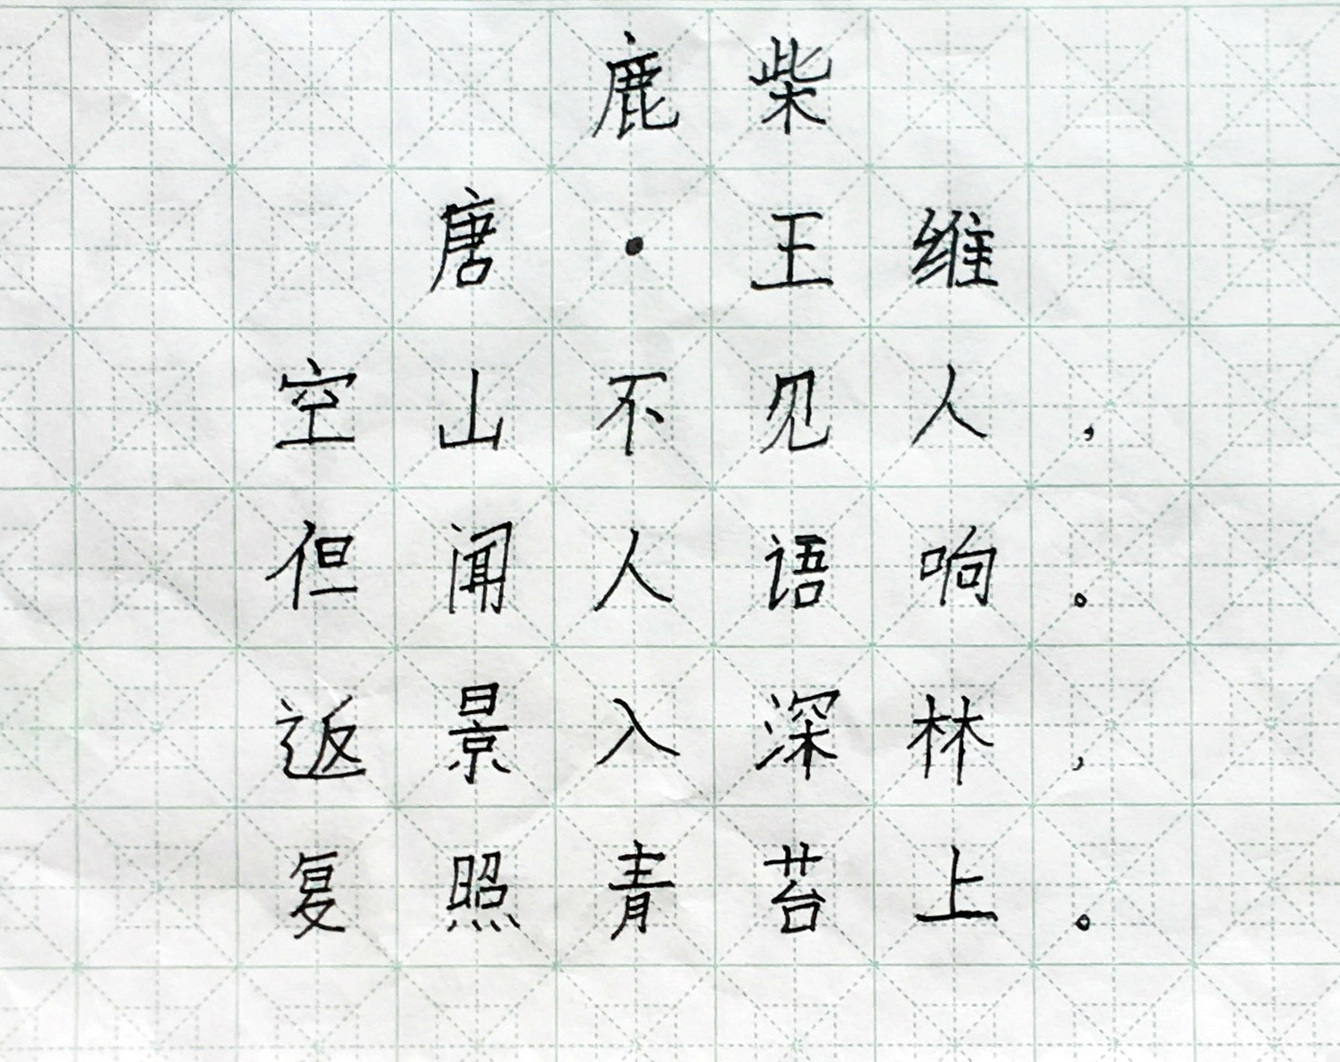 鹿柴
唐·王维
空山不见人，
但闻人语响。
返景入深林，
复照青苔上。